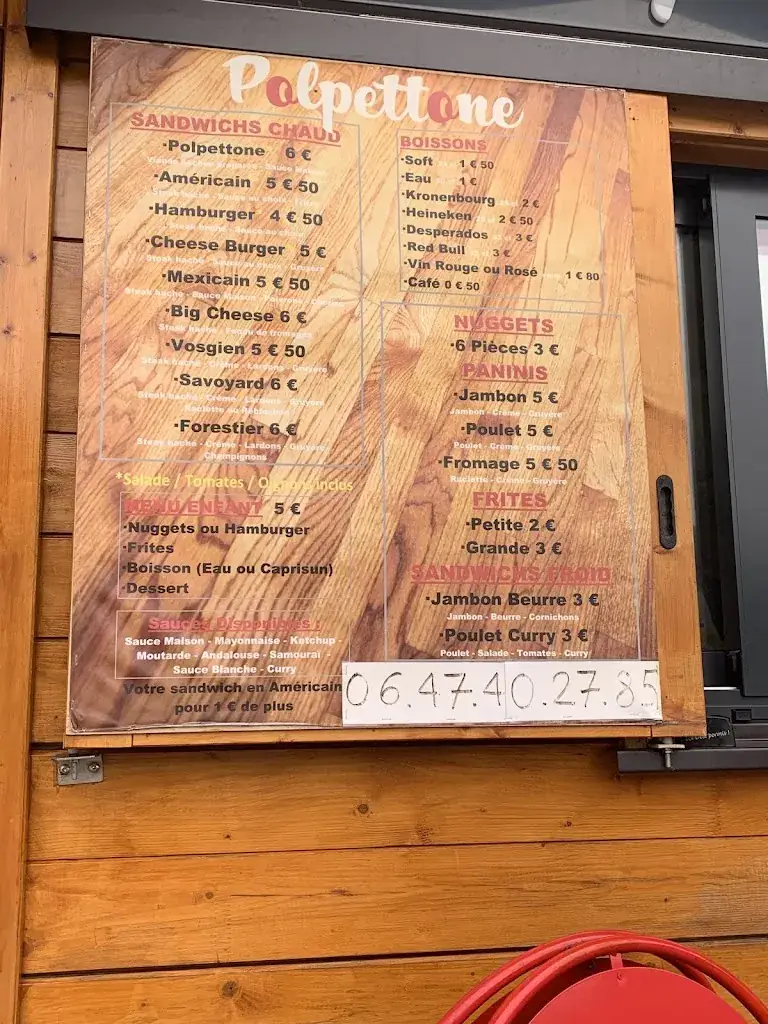 Polpettone
SANDWICHS CHAUD
·Polpettone 6 €
·Américain 5 € 50
·Hamburger 4 € 50
·Cheese Burger 5 €
Steak haché - Sauce au choix - Gruyère
·Mexicain 5 € 50
·Big Cheese 6 €
·Vosgien 5 € 50
Steak haché - Crème - Lardons - Gruyère
·Savoyard 6 €
Steak haché - Crème - Lardons - Gruyère
Raclette ou Reblochon
·Forestier 6 €
Steak haché - Crème - Lardons - Gruyère
Champignons
*Salade / Tomates / Oignons inclus
MENU ENFANT 5 €
·Nuggets ou Hamburger
·Frites
·Boisson (Eau ou Caprisun)
·Dessert
Sauces Disponibles :
Sauce Maison - Mayonnaise - Ketchup -
Moutarde - Andalouse - Samouraï
Sauce Blanche - Curry
Votre sandwich en Américain
pour 1 € de plus
BOISSONS
·Soft 1 € 50
·Eau 1 €
·Kronenbourg 2 €
·Heineken 2 € 50
·Desperados 3 €
·Red Bull 3 €
·Vin Rouge ou Rosé 1 € 80
·Café 0 € 50
NUGGETS
·6 Pièces 3 €
PANINIS
·Jambon 5 €
Jambon - Crème - Gruyère
·Poulet 5 €
Poulet - Crème - Gruyère
·Fromage 5 € 50
Raclette - Crème - Gruyère
FRITES
·Petite 2 €
·Grande 3 €
SANDWICHS FROID
·Jambon Beurre 3 €
Jambon - Beurre - Cornichons
·Poulet Curry 3 €
Poulet - Salade - Tomates - Curry
06.47.40.27.85